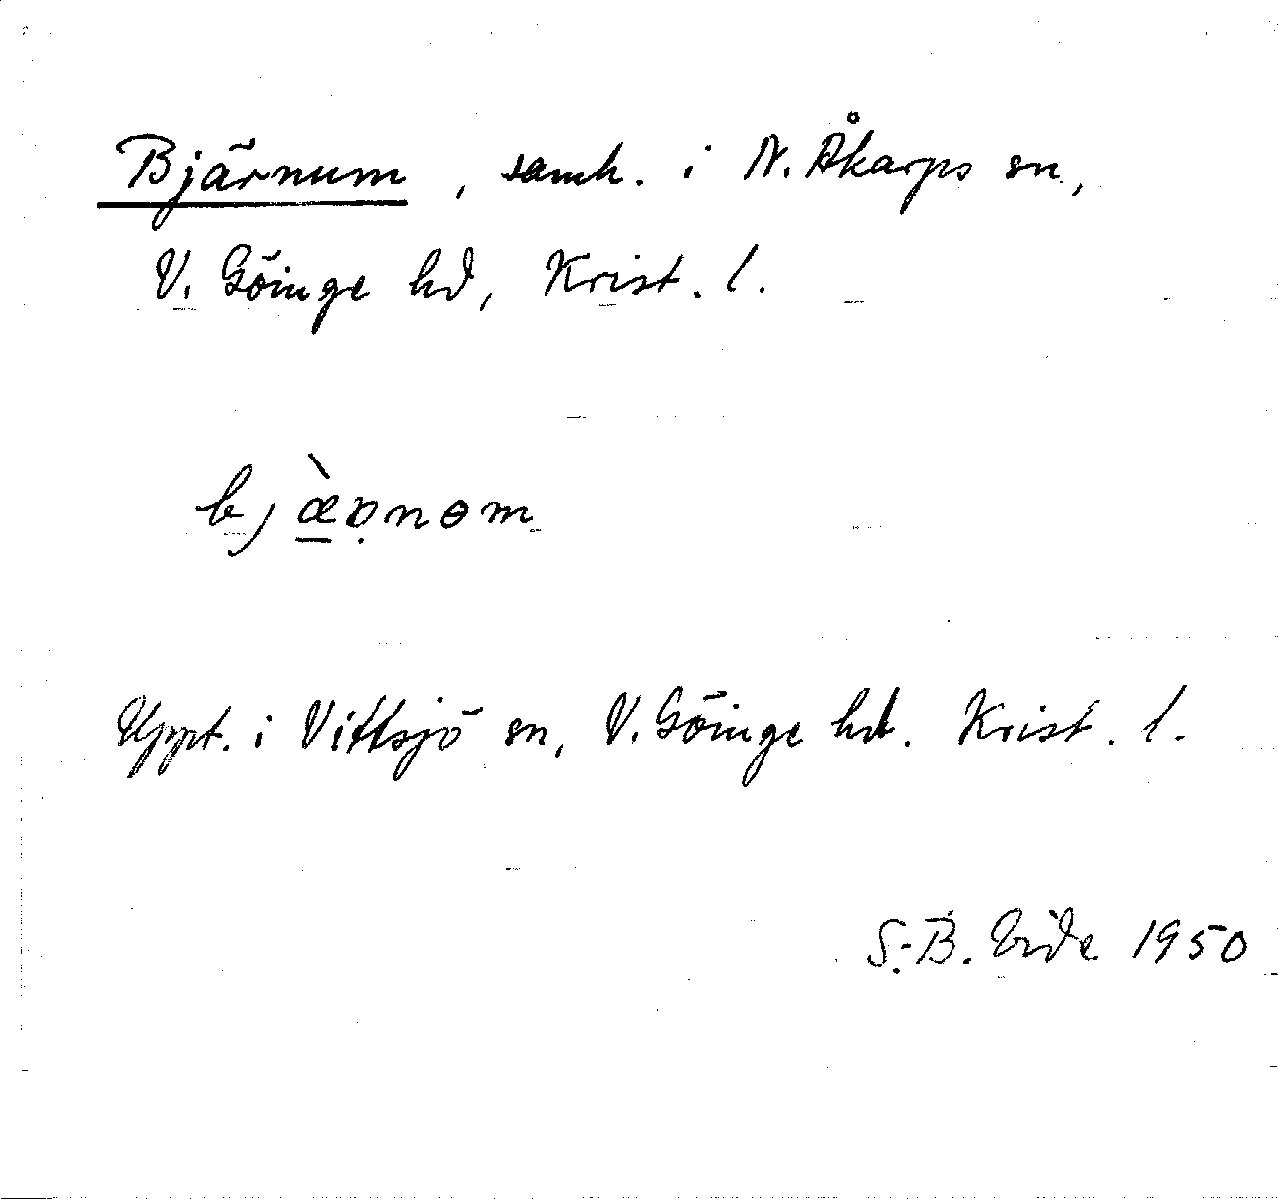 Bjärnum, samh. i N. Åkarps sn,
V. Göinge hd, Krist. l.
bjæ̀ʀ̣nɵm
Uppt. i Vittsjö sn, V. Göinge hd. Krist. l.
S.-B. Eide 1950